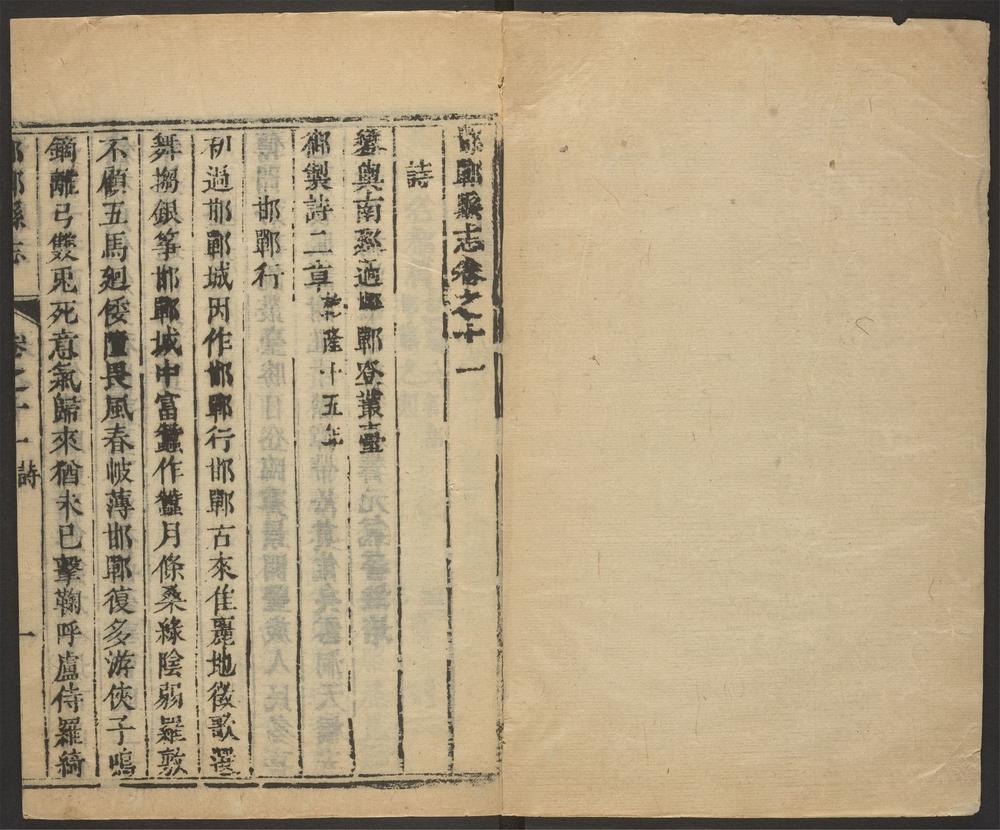 邯鄲縣志卷之十一
詩
鑾輿南廵過邯鄲登叢臺
御製詩二章乾隆十五年
邯鄲行
初過邯鄲城因作邯鄲行邯鄲古來佳麗地徵歌選
舞搊銀筝邯鄲城中富蠶作蠶月條桑綠陰弱羅敷
不顧五馬廻倭墮畏風春帔薄邯鄲復多游俠子鳴
鏑離弓雙兎死意氣歸來猶未已擊鞠呼盧侍羅綺
邯鄲縣志 卷之十一 詩 一